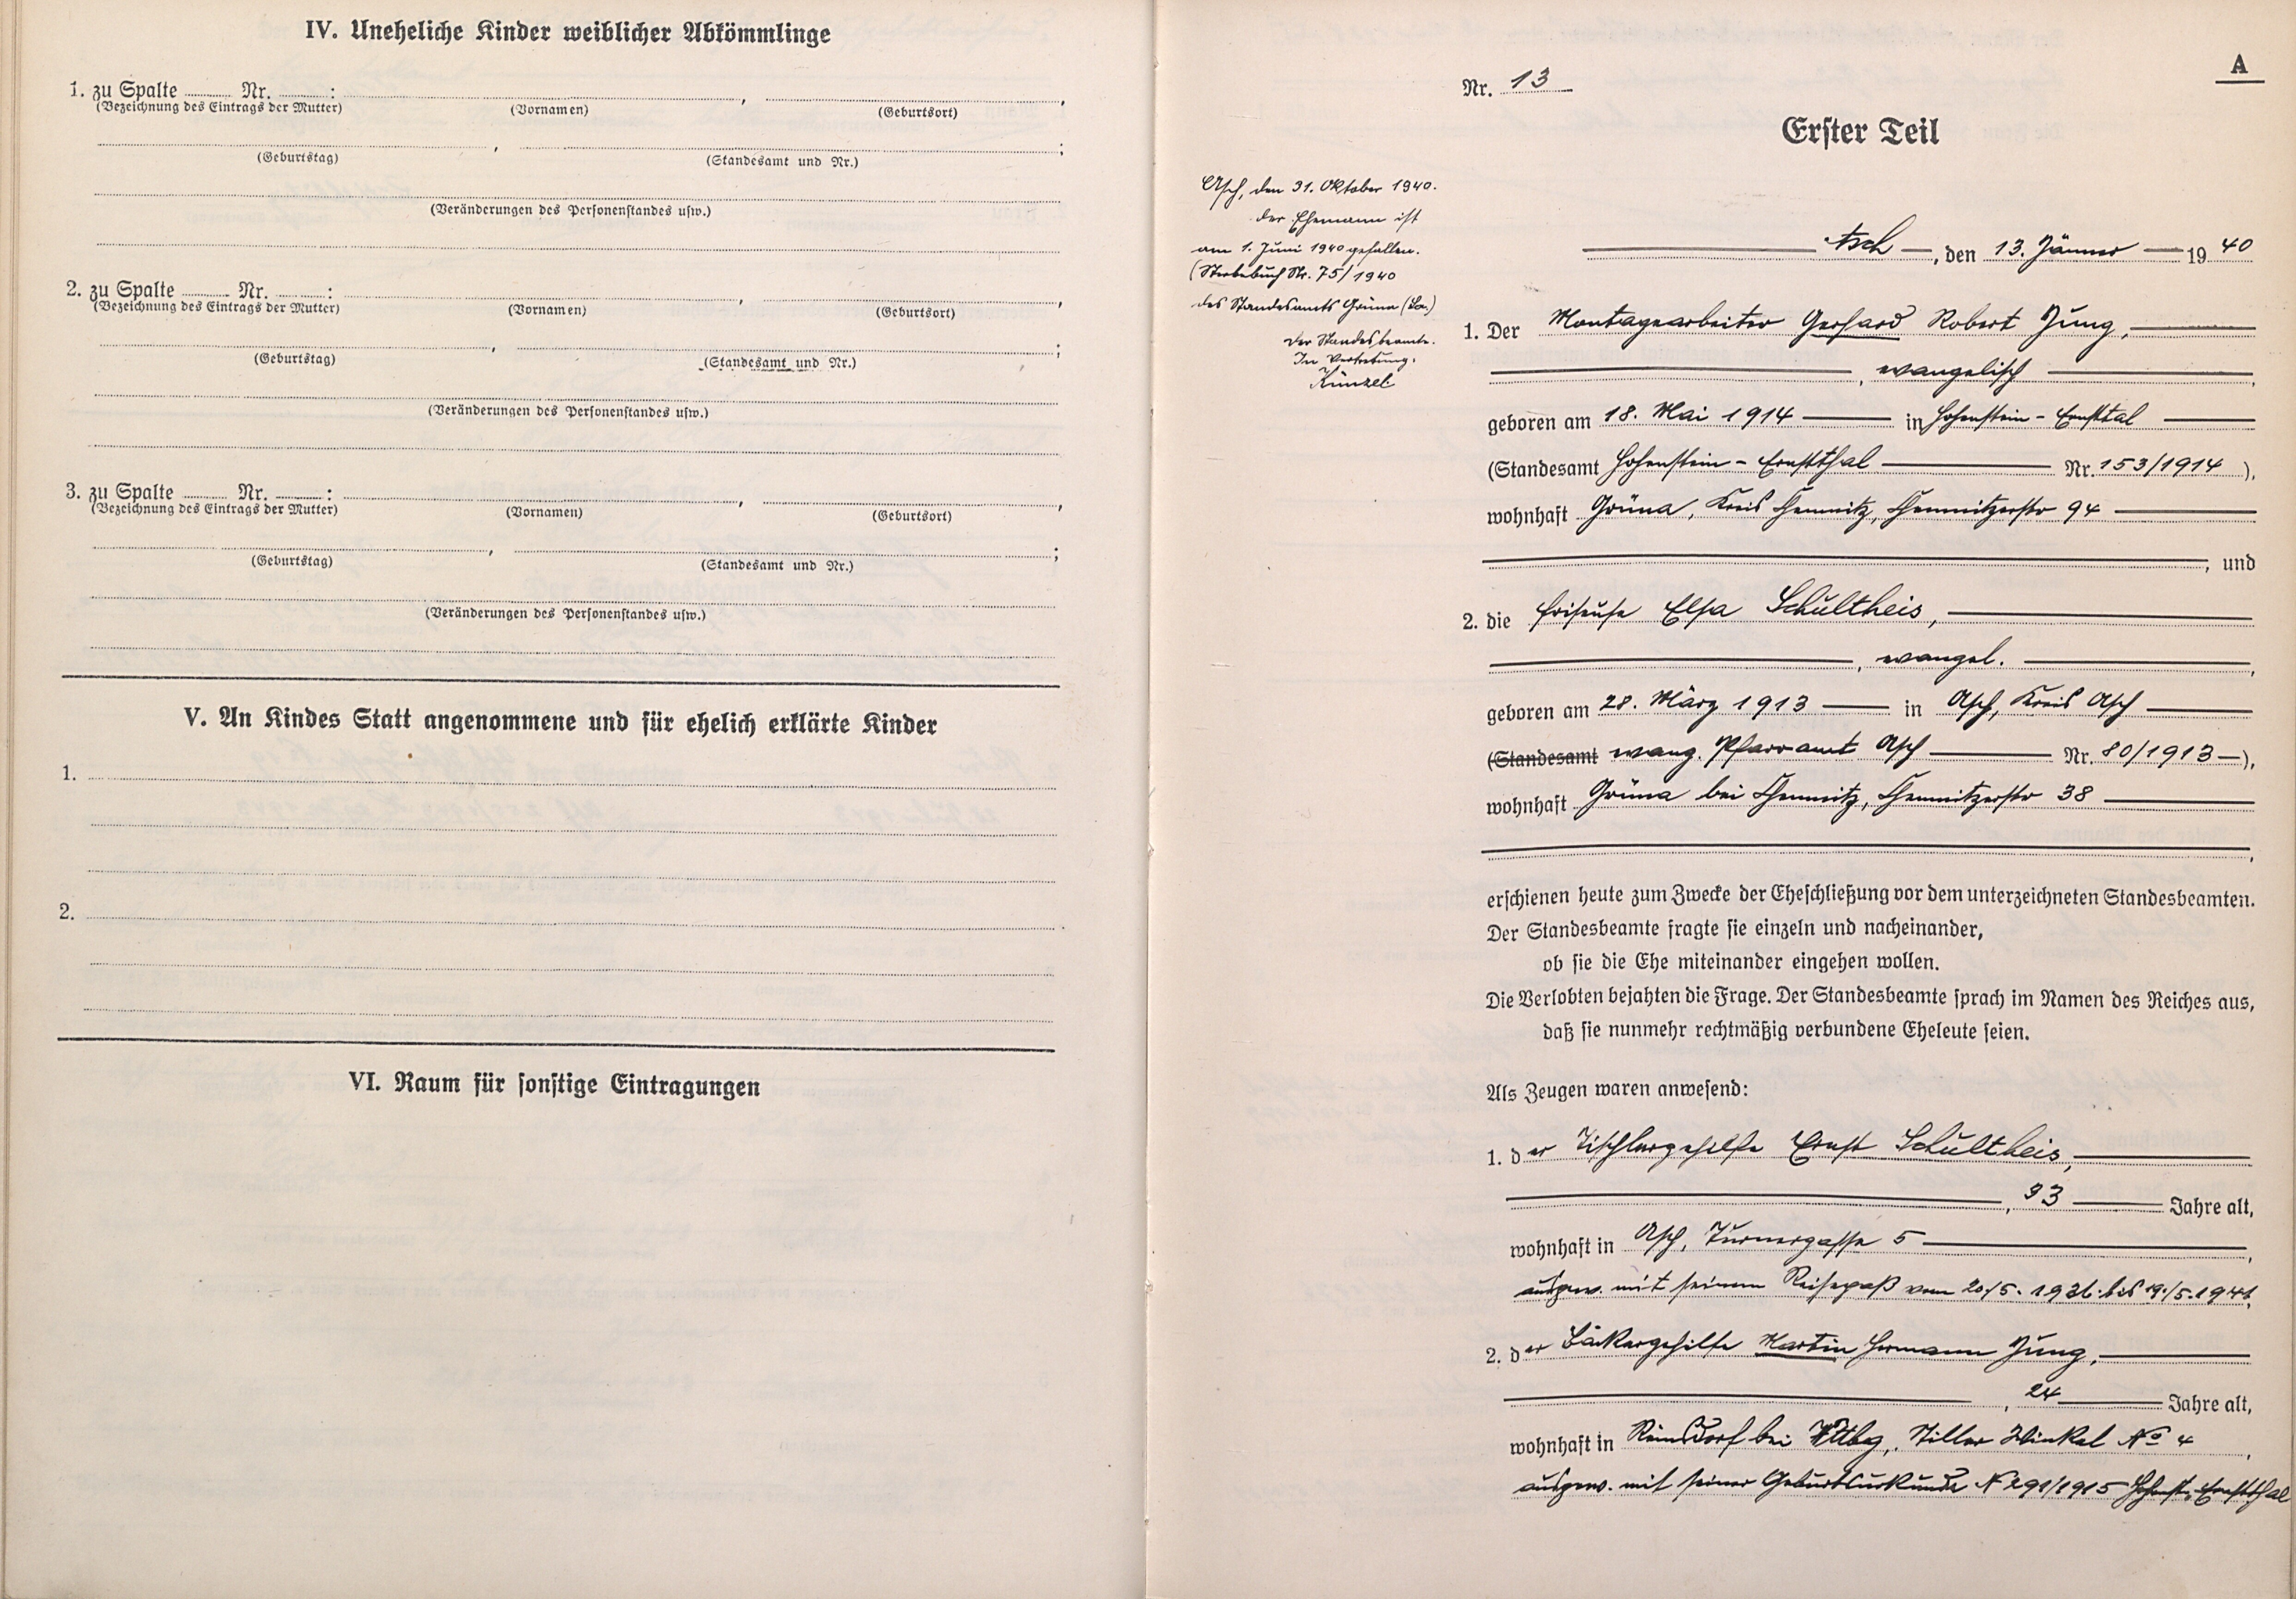 IV. Uneheliche Kinder weiblicher Abkömmlinge
1. zu Spalte ........ Nr. ........ : , ,
(Bezeichnung des Eintrags der Mutter) (Vornamen) (Geburtsort)
, ;
(Geburtstag) (Standesamt und Nr.)
(Veränderungen des Personenstandes usw.)
2. zu Spalte ........ Nr. ........ : , ,
(Bezeichnung des Eintrags der Mutter) (Vornamen) (Geburtsort)
, ;
(Geburtstag) (Standesamt und Nr.)
(Veränderungen des Personenstandes usw.)
3. zu Spalte ........ Nr. ........ : , ,
(Bezeichnung des Eintrags der Mutter) (Vornamen) (Geburtsort)
, ;
(Geburtstag) (Standesamt und Nr.)
(Veränderungen des Personenstandes usw.)
V. An Kindes Statt angenommene und für ehelich erklärte Kinder
1.
2.
VI. Raum für sonstige Eintragungen
A
Nr. 13
Erster Teil
Asch, den 31. Oktober 1940.
der Ehemann ist
am 1. Juni 1940 gefallen.
(Sterbebuch Nr. 75/1940
des Standesamts Grüna (Sa.)
Der Standesbeamte.
In Vertretung:
Künzel
Asch, den 13. Jänner 1940
1. Der Montagearbeiter Gerhard Robert Jung,
, evangelisch ,
geboren am 18. Mai 1914 in Hohenstein-Ernsttal
(Standesamt Hohenstein-Ernstthal Nr. 153/1914),
wohnhaft Grüna, Kreis Chemnitz, Chemnitzerstr 94
, und
2. die Friseuse Elsa Schultheis,
, evangel. ,
geboren am 28. März 1913 in Asch, Kreis Asch
(Standesamt evang. Pfarramt Asch Nr. 80/1913),
wohnhaft Grüna bei Chemnitz, Chemnitzerstr 38
,
erschienen heute zum Zwecke der Eheschließung vor dem unterzeichneten Standesbeamten.
Der Standesbeamte fragte sie einzeln und nacheinander,
ob sie die Ehe miteinander eingehen wollen.
Die Verlobten bejahten die Frage. Der Standesbeamte sprach im Namen des Reiches aus,
daß sie nunmehr rechtmäßig verbundene Eheleute seien.
Als Zeugen waren anwesend:
1. der Tischlergehilfe Ernst Schultheis,
, 33 Jahre alt,
wohnhaft in Asch, Turnergasse 5 ,
ausgew. mit seinem Reisepaß vom 20/5. 1936. bis 19./5. 1941,
2. der Bäckergehilfe Martin Hermann Jung,
, 24 Jahre alt,
wohnhaft in Reinsdorf bei Wttbg, Stiller Winkel No 4 ,
ausgew. mit seiner Geburtsurkunde N 291/1915 Hohenst.-Ernstthal